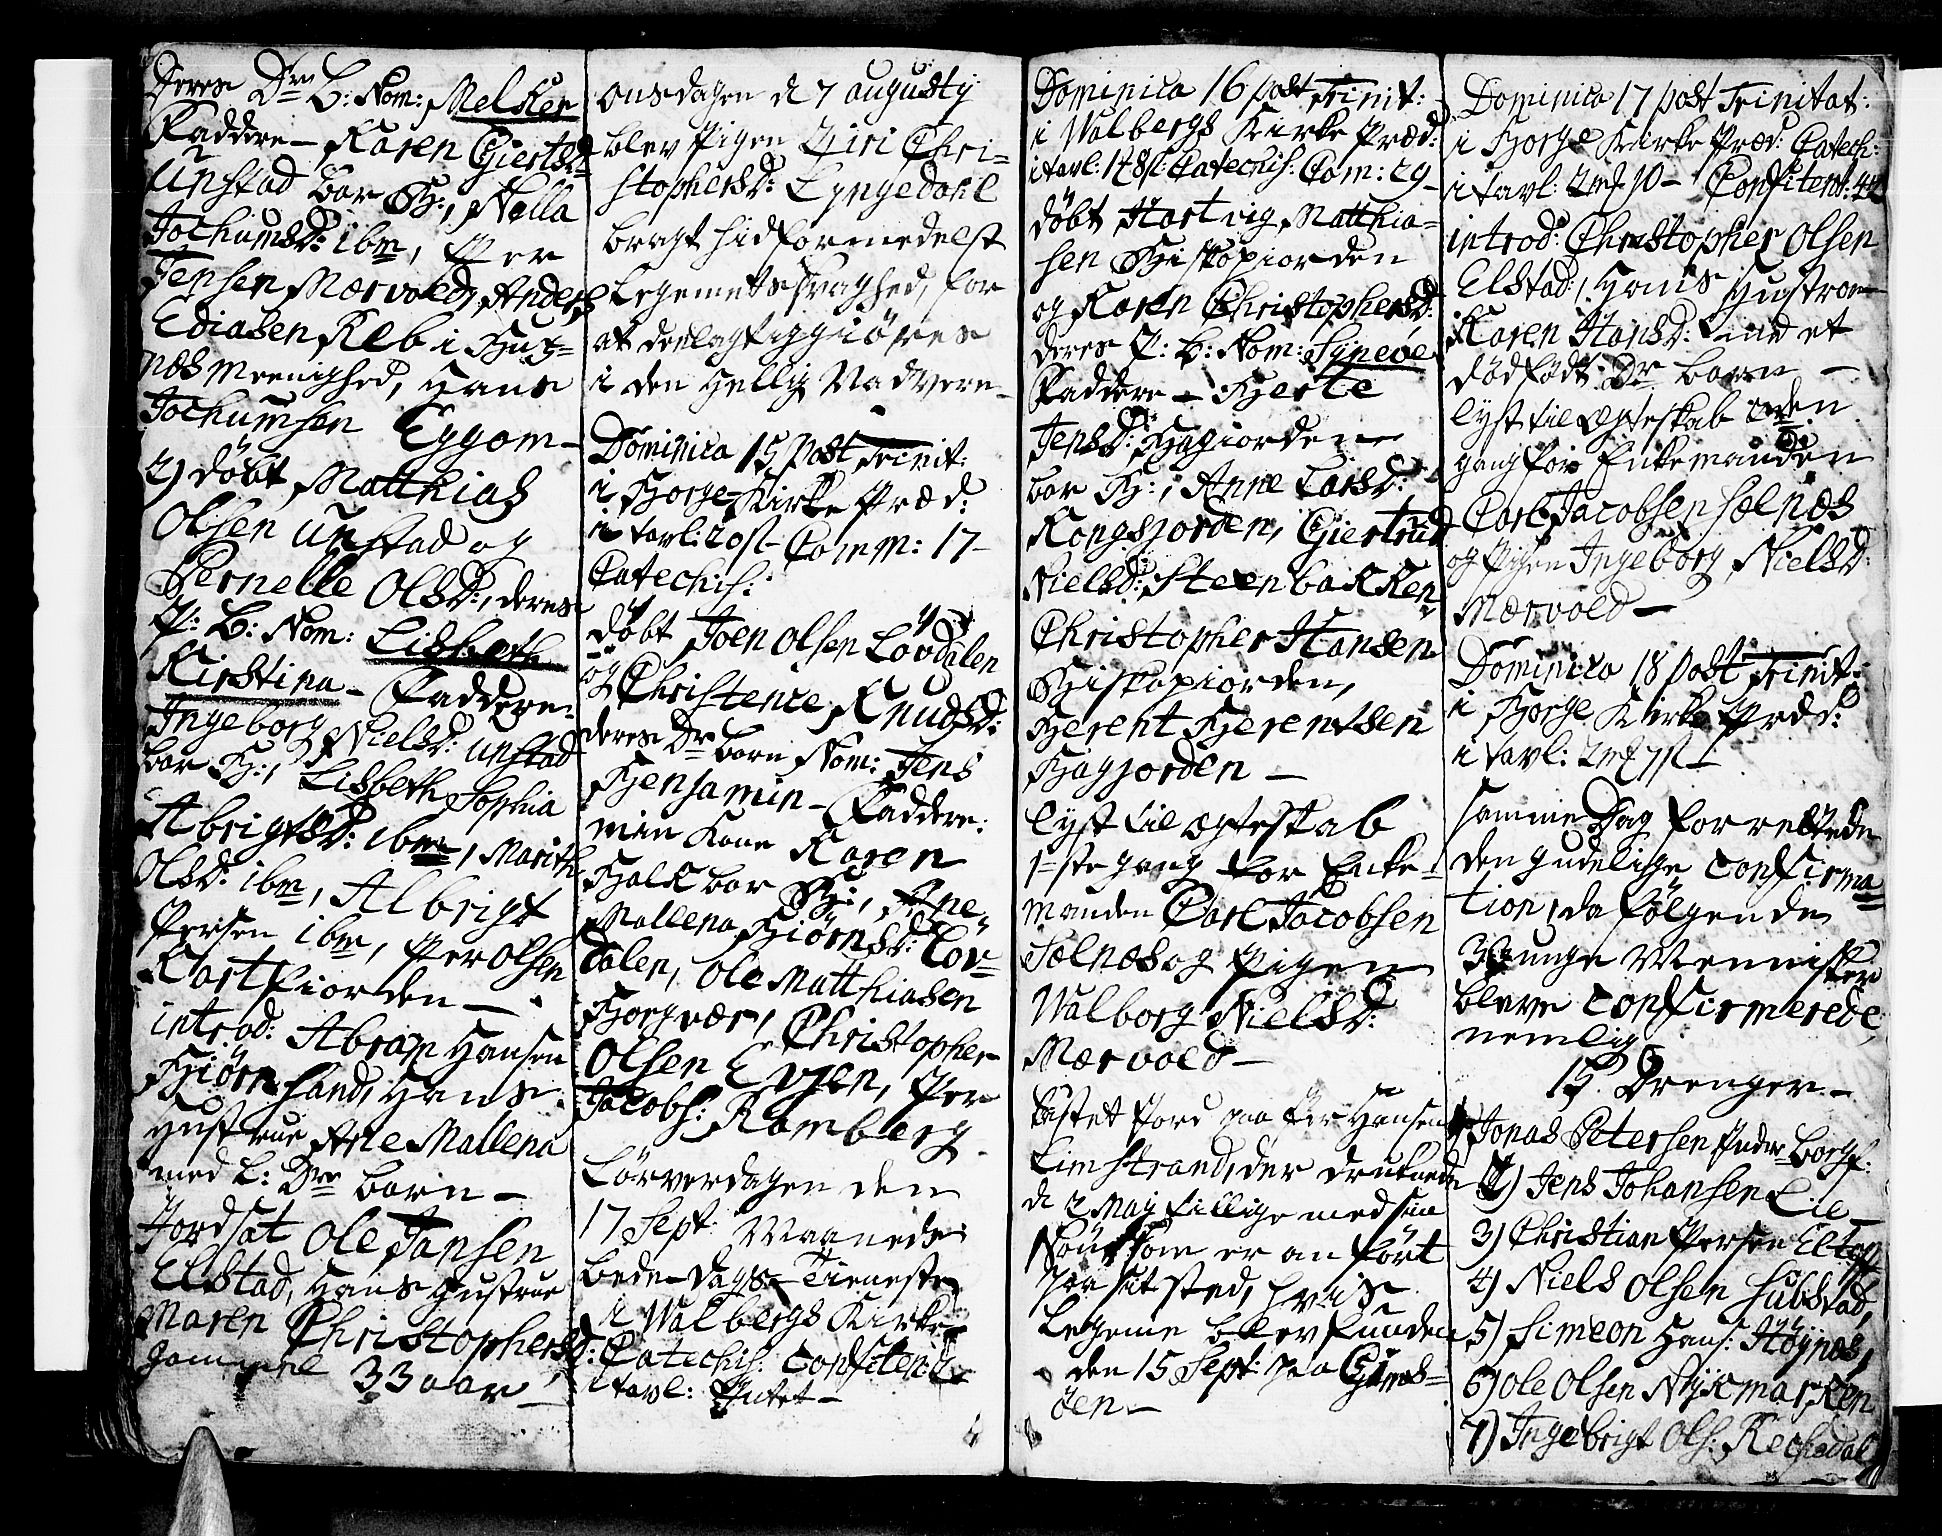 Deres Dr: B: Nom: Melker
Faddere – Karen Giertsd:
Unstad bar B:, Nella
Jochumsd: ibm, Per
Jensen Mærvold, Anders
Ediasen Reb i Bux=
næs Meenighed, Hans
Jochumsen Eggom –
2) døbt Matthias
Olsen Unstad og
Pernelle Olsd:, deres
P: B: Nom: Lisbeth
Kirstina – Faddere
Ingeborg Nielsd: Unstad
bar B:, Lisbeth Sophia
Abrigtsd: ibm, Marith
Olsd: ibm, Albrigt
Persen ibm, Per Olsen
Kartfiorden –
introd: Abram Hansen
Biørnsand, Hans
Hustrue Ane Mallena
med L: Dr: barn –
Jordsat Ole Jansen
Elstad, Hans Hustrue
Maren Christophersd:
gammel 33 aar –
Onsdagen d 7 augusty
blev Pigen Siri Chri=
stophersd: Lyngedahl
bragt hid formedelst
Legemets svaghed, for
at deelagtiggiøres
i den Hellig Nadvere –
Dominica 15 post Trinit:
i Borge Kirke Præd:
i tavl: 20 s – Comm: 17 –
Catechis:
døbt Joen Olsen Løvdalen
og Christence Knudsd:
deres Dr: barn Nom: Jens
Benjamin – Faddere:
min Kone Karen
Balk bar B:, Ane
Mallena Biørnsd: Løv=
dalen, Ole Matthiasen
Borgvær, Christopher
Olsen Evjen, Per
Jacobs: Ramberg –
Løverdagen den
17 Sept: Maaneds
bede-dags-Tieneste
i Walbergs Kirke
Catechis: Confitent:
i tavl: Intet –
Dominica 16 post Trinit:
i Walbergs Kirke Præd:
i tavl: Catechis: Com: 29 –
døbt Hartvig Matthia=
sen Biskopiorden
og Karen Christophersd:
deres P: B: Nom: Syneve
Faddere – Berte
Jensd: Bagiorden
bar B:, Anne Larsd:
Kongsjorden, Giertrud
Nielsd: Steenbakken
Christopher Hansen
Biskopiorden,
Berent Berentsen
Bagjorden –
lyst til Ægteskab
1=ste gang for Enke=
manden Carl Jacobsen
Sælnæs og Pigen
Walborg Nielsd:
Mærvold –
Castet Jord paa Per Hansen
Limstrand, der druknede
d 2 May tillige med sin
Søn som er anført
paa sit sted, hvis
Legeme blev funden
den 15 Sept: paa Gims=
øen –
Dominica 17 post Trinitat:
i Borge Kirke Præd: Catech:
i tavl: 2 mk 10 – Confitent: 44
introd: Christopher Olsen
Elstad, Hans Hustroe
Karen Hansd: med et
dødfødt Dr: barn –
lyst til Ægteskab 2den
gang for Enkemanden
Carl Jacobsen Sælnæs
og Pigen Ingeborg Nielsd:
Mærvold –
Dominica 18 post Trinit:
i Borge Kirke Præd:
i tavl: 2 mk 7 s
samme Dag forrettede
den gudelige Confirma=
tion, da følgende
unge Mennisker
bleve Confirmerede,
nemlig
15 Drenger –
1) Jonas Petersen Borgf:
2) Jens Johansen Lie
3) Christian Persen Eltoft
4) Niels Olsen Hubstad,
5) Simeon Hans: Høynæs,
6) Ole Olsen Nykmarken
7) Ingebrigt Ols: Rechedal